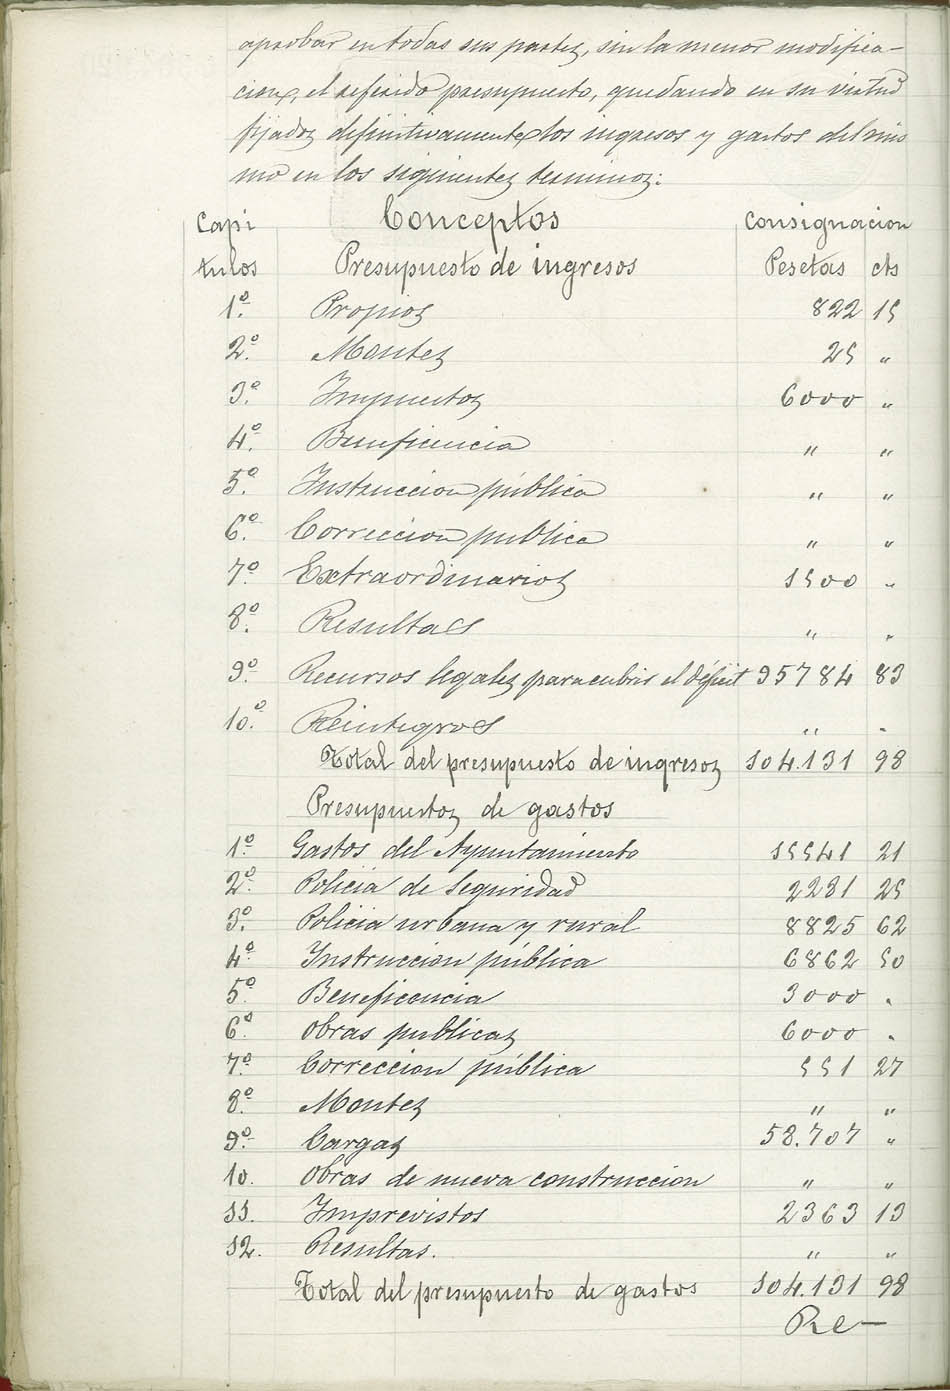 aprobar en todas sus partes, sin la menor modifica-
cion, el referido presupuesto, quedando en su virtud
fijados definitivamente los ingresos y gastos del mis
mo en los siguientes terminos:
Capi Conceptos Consignacion
tulos Presupuesto de ingresos Pesetas cts
1º. Propios 822 15
2º. Montes 25 "
3º. Impuestos 6000 "
4º. Beneficencia " "
5º. Instruccion pública " "
6º. Correccion publica " "
7º. Extraordinarios 1500 "
8º. Resultas " "
9º. Recursos legales para cubrir el déficit 95784 83
10º. Reintegros " "
Total del presupuesto de ingresos 104.131 98
Presupuestos de gastos
1º. Gastos del Ayuntamiento 15541 21
2º. Policia de Seguridad 2281 25
3º. Policia urbana y rural 8825 62
4º. Instruccion pública 6862 50
5º. Beneficencia 3000 "
6º. Obras publicas 6000 "
7º. Correccion pública 551 27
8º. Montes " "
9º. Cargas 58.707 "
10. Obras de nueva construccion " "
11. Imprevistos 2363 13
12. Resultas. " "
Total del presupuesto de gastos 104.131 98
Re-